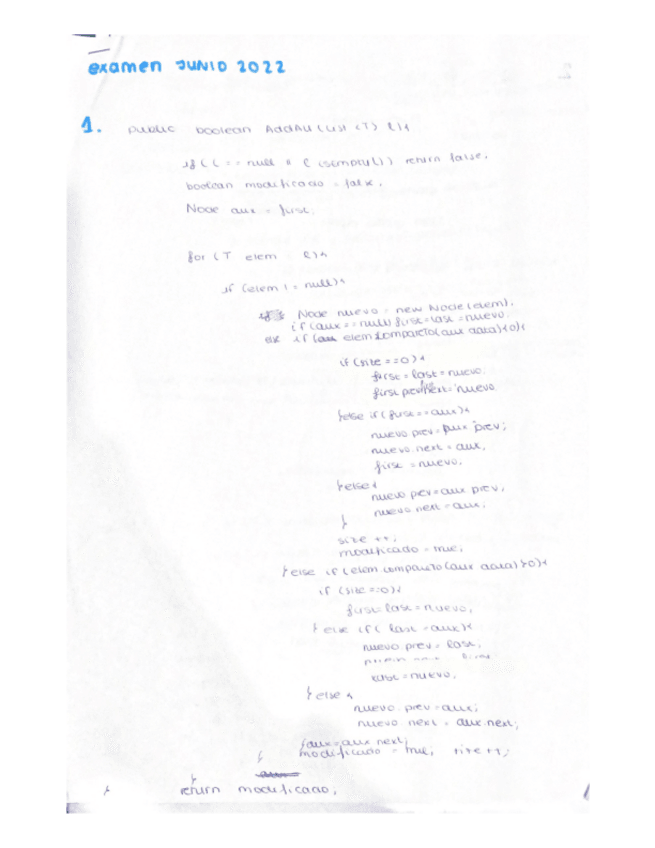 examen JUNIO 2022
1. public boolean AddAll (List <T> l){
if (l == null || l.isEmpty()) return false;
boolean modificado = false;
Node aux = first;
for (T elem : l){
if (elem != null){
Node nuevo = new Node(elem);
if (aux == null) first=last=nuevo;
else if (elem.compareTo(aux.data)<0){
if (size ==0){
first = last = nuevo;
nuevo
}else if (first==aux){
nuevo.prev=aux.prev;
nuevo.next = aux;
first = nuevo;
}else{
nuevo.prev=aux.prev;
nuevo.next=aux;
}
size ++;
modificado = true;
}else if (elem.compareTo(aux.data)>0){
if (size ==0){
first=last=nuevo;
} else if( last =aux){
nuevo.prev = last;
last = nuevo;
}else {
nuevo.prev=aux;
nuevo.next = aux.next;
}aux=aux.next;
modificado = true; size++;
}
}
} return modificado;